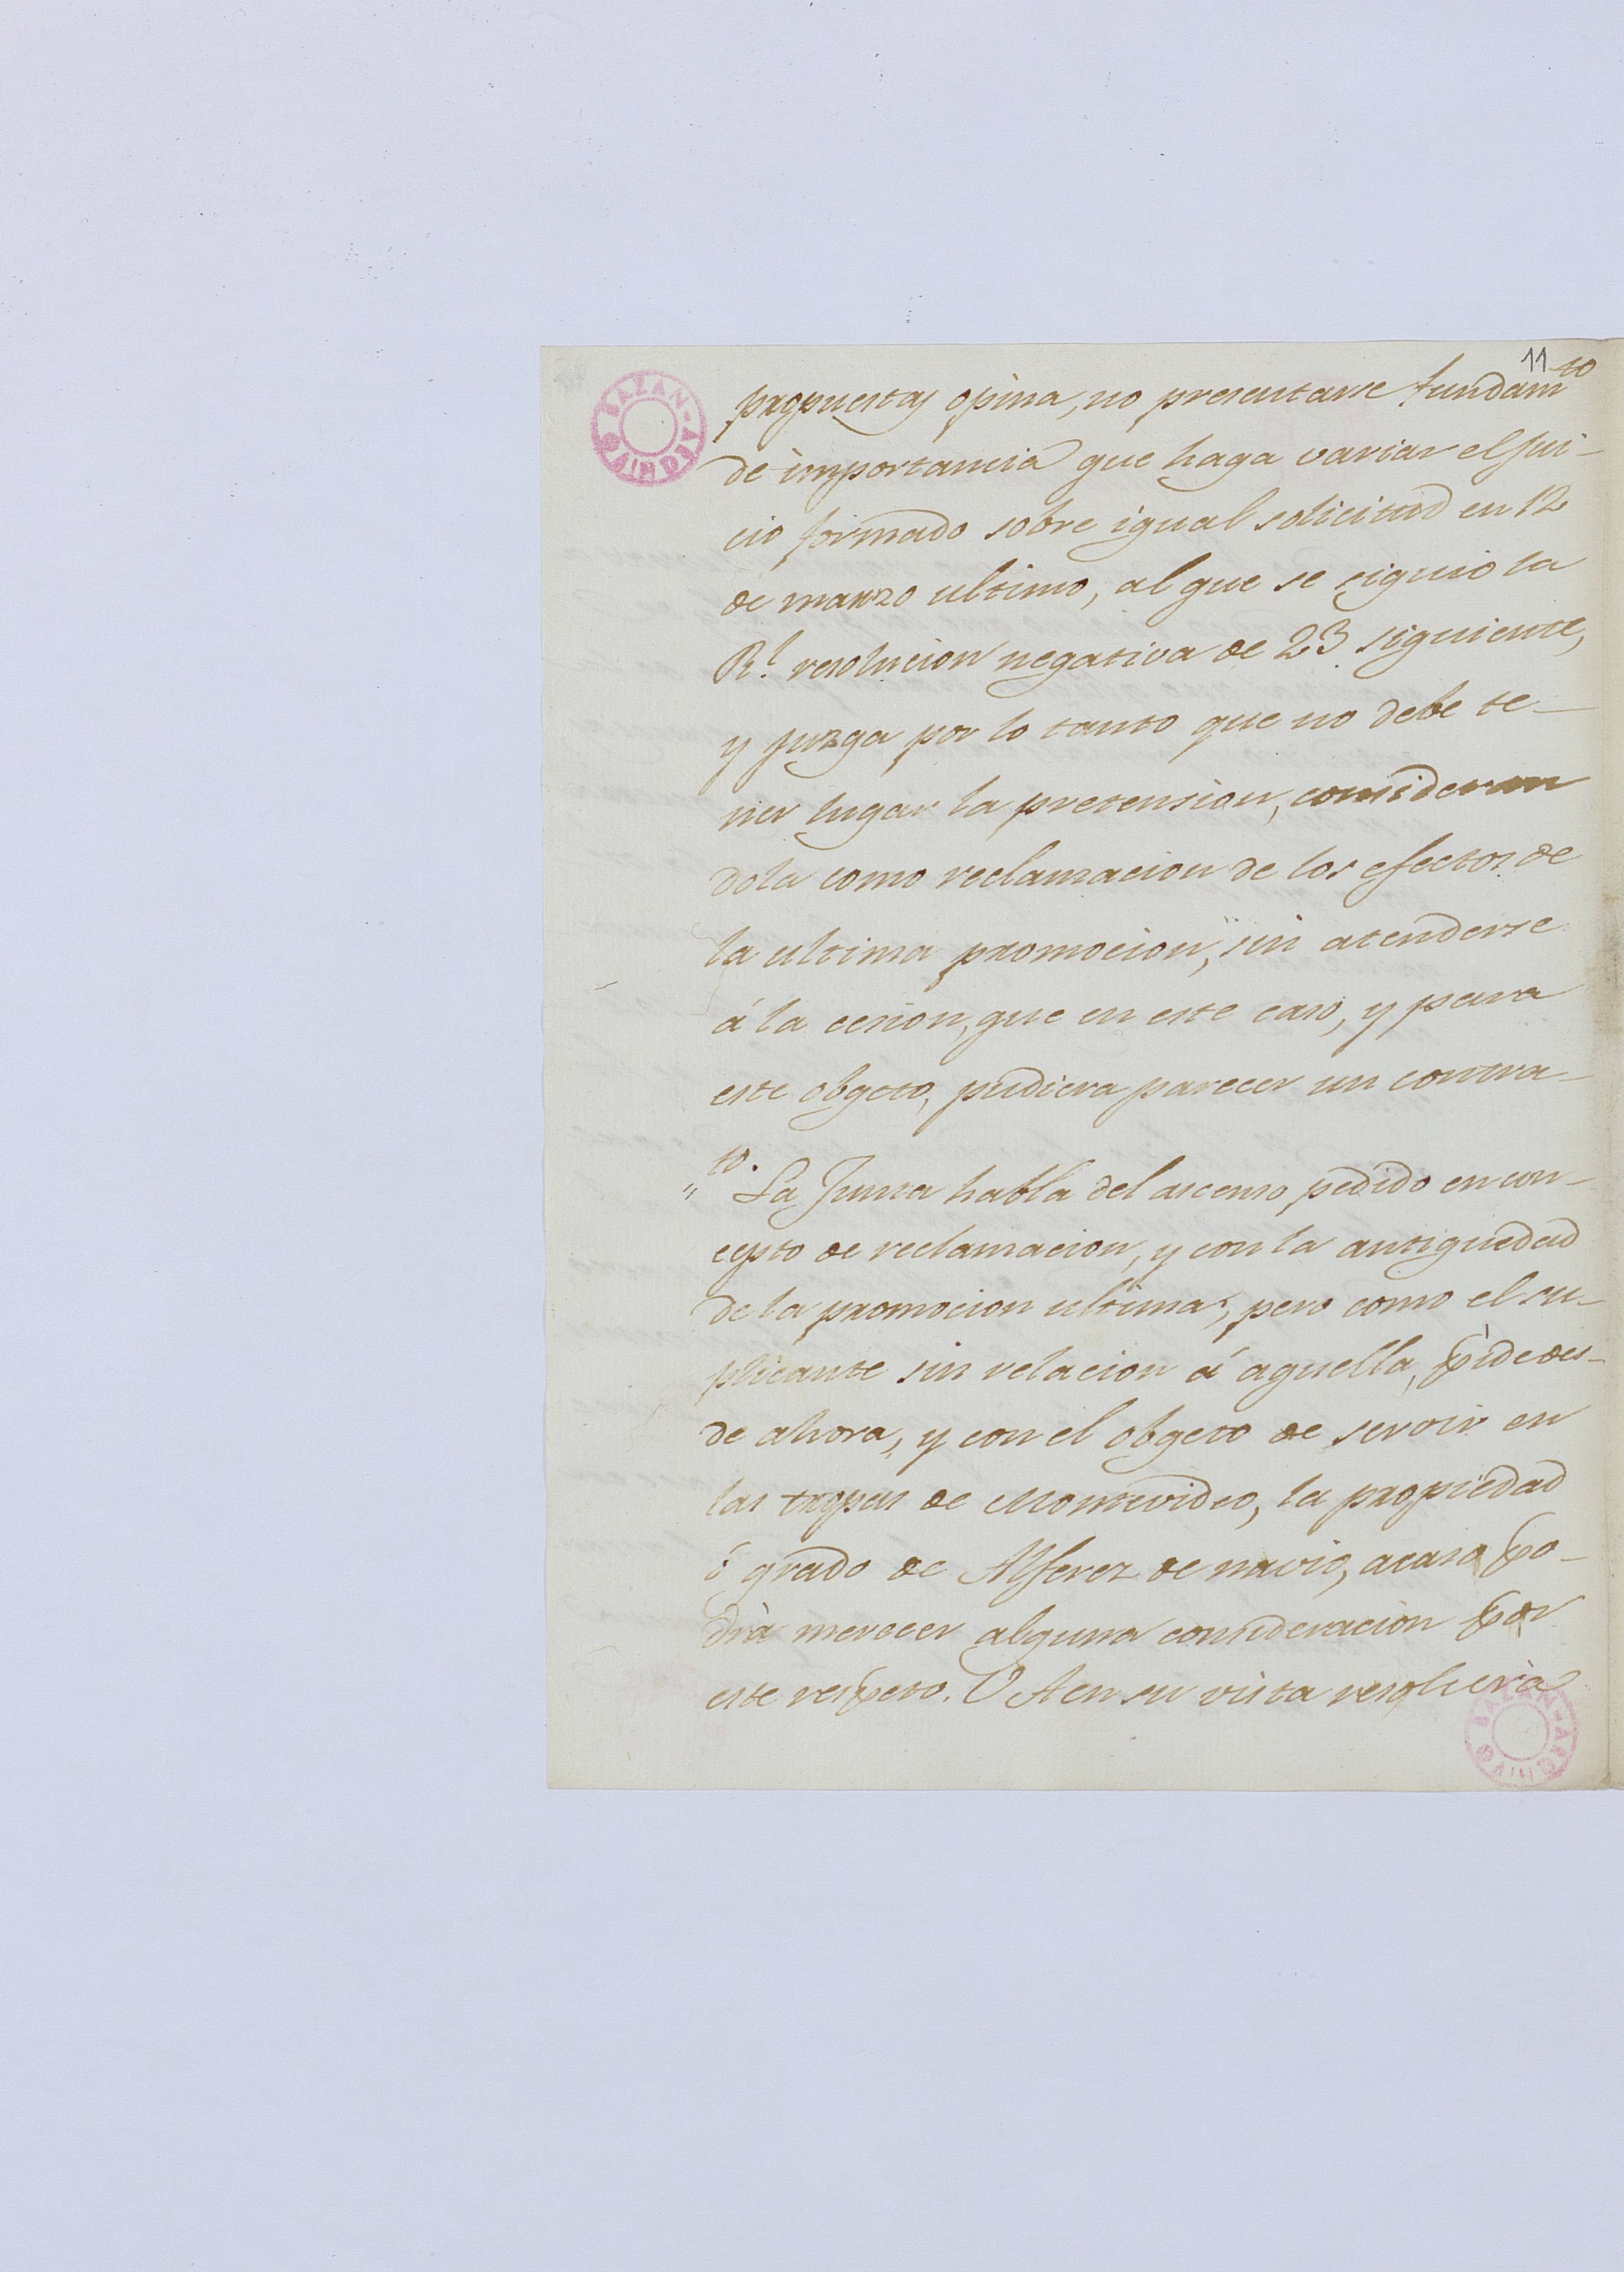 11
propuestas opina, no presentarse fundam.to
de importancia que haga variar el jui-
cio formado sobre igual solicitud en 12
de marzo ultimo, al que se siguio la
Rl. resolucion negativa de 23 siguiente,
y juzga por lo tanto que no debe te-
ner lugar la pretension, consideran
dola como reclamacion de los efectos de
la ultima promocion, sin atenderse
á la cesion, que en este caso, y para
este obgeto, pudiera parecer un contra-
to.
" La Junta habla del ascenso pedido en con-
cepto de reclamacion, y con la antiguedad
de la promocion ultima; pero como el su-
plicante sin relacion á aquella, pide des-
de ahora, y con el obgeto de servir en
las tropas de Montevideo, la propiedad
ó grado de Alferez de navio, acaso po-
dria merecer alguna consideracion por
este respeto. V A en su vista resolverá
BAZAN-ARCHIVO
BAZAN-ARCHIVO